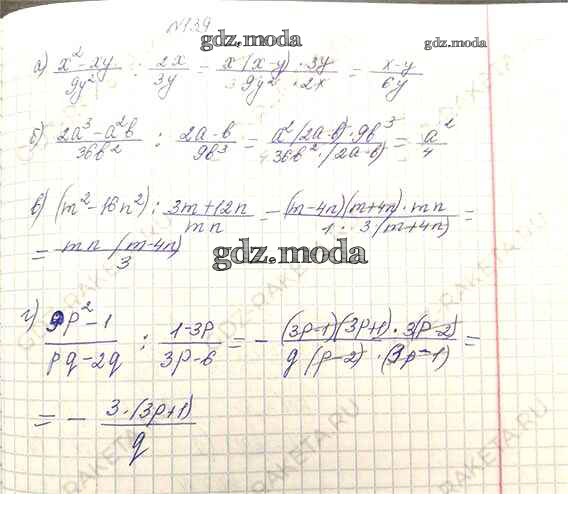 №139
gdz.moskow
а) (x² - xy)/(9y²) : 2x/3y = (x(x-y)·3y)/(3 9y²·2x) = (x-y)/(6y)
gdz.moskow
б) (2a³ - a²b)/(36b²) : (2a-b)/(9b³) = (a²(2a-b)·9b³)/(4 36b²·(2a-b)) = a²/4
в) (m² - 16n²) : (3m+12n)/(mn) = ((m-4n)(m+4n)·mn)/(1·3(m+4n)) =
= (mn(m-4n))/3
gdz.moskow
г) (9p² - 1)/(pq - 2q) : (1-3p)/(3p-6) = - ((3p-1)(3p+1)·3(p-2))/(q(p-2)·(3p-1)) =
= - (3·(3p+1))/q
gdz.moskow